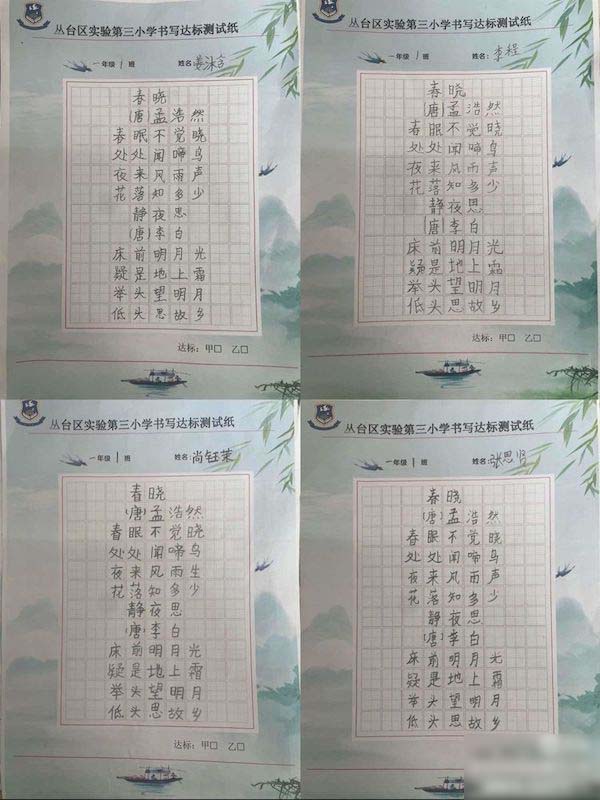 丛台区实验第三小学书写达标测试纸
一年级 1 班 姓名:
春晓
(唐)孟浩然
春眠不觉晓
处处闻啼鸟
夜来风雨声
花落知多少
静夜思
(唐)李白
床前明月光
疑是地上霜
举头望明月
低头思故乡
达标:甲□ 乙□
丛台区实验第三小学书写达标测试纸
一年级 1 班 姓名:李程
春晓
(唐)孟浩然
春眠不觉晓
处处闻啼鸟
夜来风雨声
花落知多少
静夜思
(唐)李白
床前明月光
疑是地上霜
举头望明月
低头思故乡
达标:甲□ 乙□
丛台区实验第三小学书写达标测试纸
一年级 1 班 姓名:尚钰茉
春晓
(唐)孟浩然
春眠不觉晓
处处闻啼鸟
夜来风雨生
花落知多少
静夜思
(唐)李白
床前明月光
疑是地上霜
举头望明月
低头思故乡
达标:甲□ 乙□
丛台区实验第三小学书写达标测试纸
一年级 1 班 姓名:张思贤
春晓
(唐)孟浩然
春眠不觉晓
处处闻啼鸟
夜来风雨声
花落知多少
静夜思
(唐)李白
床前明月光
疑是地上霜
举头望明月
低头思故乡
达标:甲□ 乙□